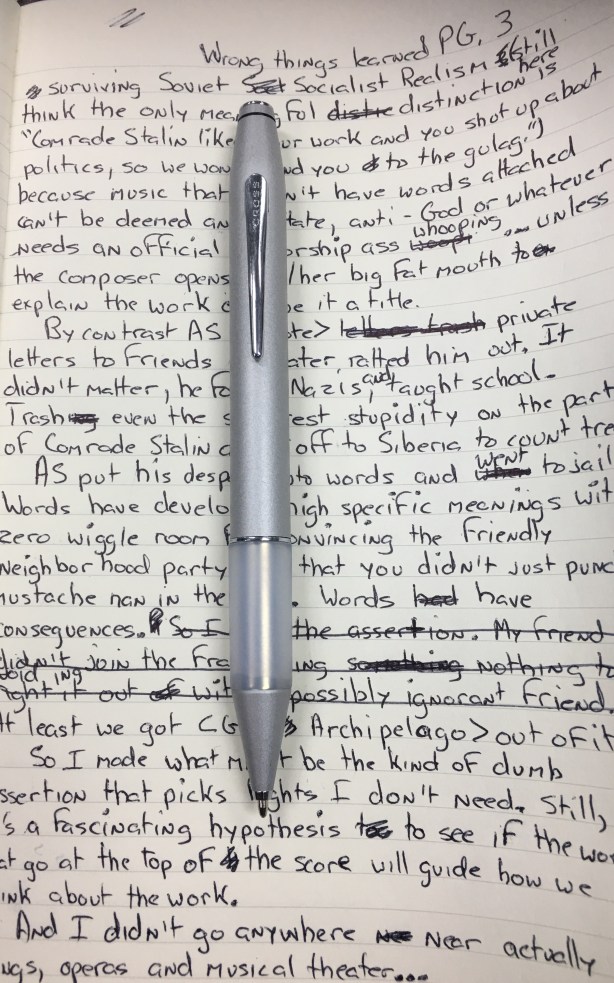 Wrong things learned PG. 3
surviving Soviet Socialist Realism (still
think the only mea ful distinction here is
"Comrade Stalin like ur work and you shut up about
politics, so we won nd you to the gulag.")
because music that n't have words attached
can't be deemed an tate, anti-God or whatever
needs an official orship ass whooping ... unless
the composer opens /her big fat mouth to
explain the work e it a title.
By contrast AS te> private
letters to friends ater, ratted him out. It
didn't matter, he fo Nazis, and taught school.
Trash even the s est stupidity on the part
of Comrade Stalin off to Siberia to count tre
AS put his desp to words and went to jail
Words have develo high specific meanings wit
zero wiggle room onvincing the friendly
neighborhood party that you didn't just punc
mustache man in the . Words have
onsequences. So I the assertion. My friend
didn't join the fra ing something nothing to
void ing
ght it out of wit possibly ignorant friend.
t least we got <G Archipelago> out of it
So I made what m t be the kind of dumb
ssertion that picks ights I don't need. Still,
's a fascinating hypothesis to see if the wo
at go at the top of the score will guide how we
ink about the work.
And I didn't go anywhere near actually
ngs, operas and musical theater...
CROSS